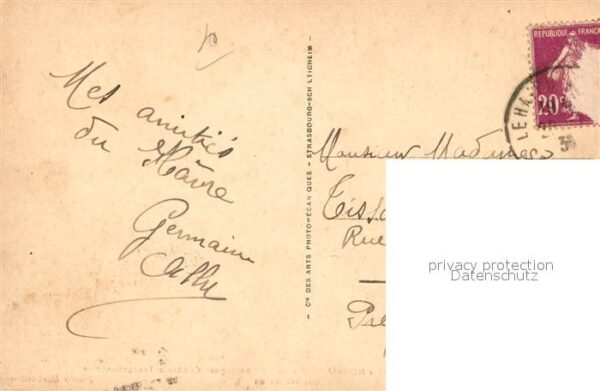 Mes amitiés
du Hâvre
Germain
Cie DES ARTS PHOTOMECANIQUES - STRASBOURG-SCHILTIGHEIM -
REPUBLIQUE FRANÇA
20
LE HA
Monsieur Madame
Rue
privacy protection
Datenschutz